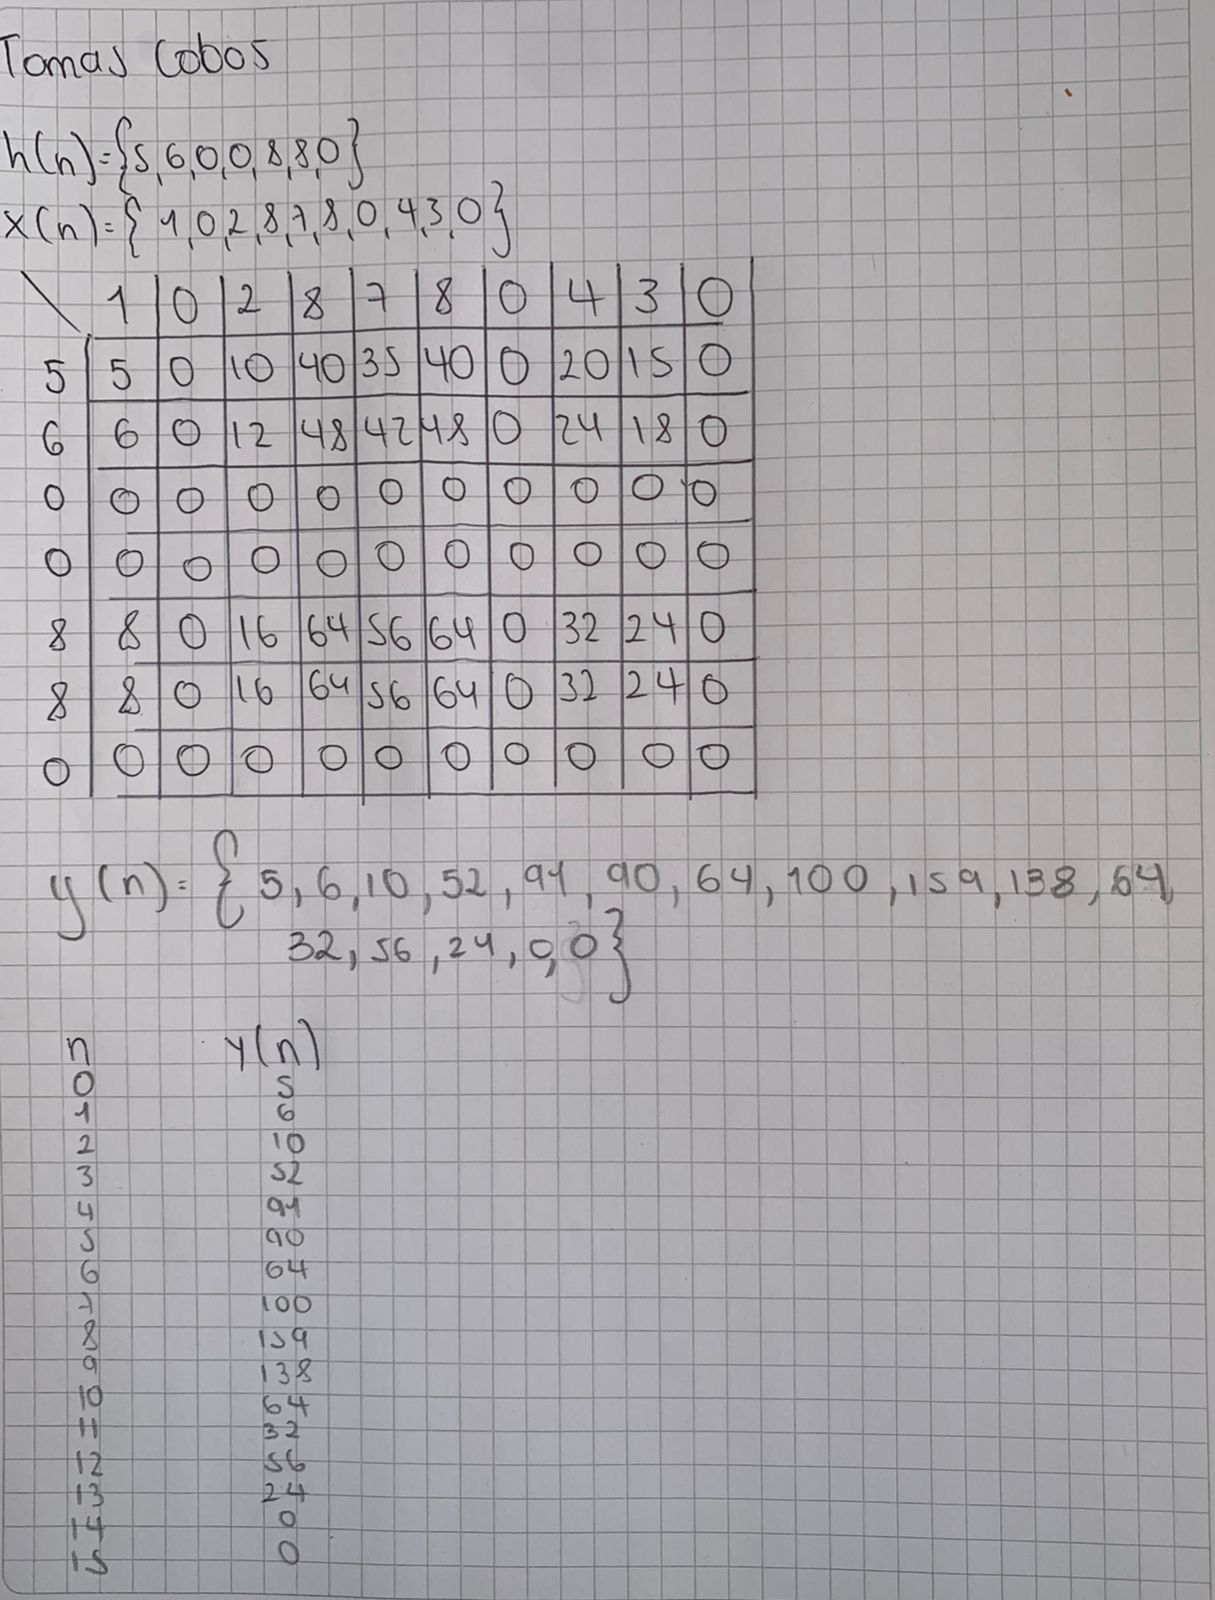 Tomas Cobos
h(n)={5,6,0,0,8,8,0}
x(n)={1,0,2,8,7,8,0,4,3,0}
\ 1 0 2 8 7 8 0 4 3 0
5 5 0 10 40 35 40 0 20 15 0
6 6 0 12 48 42 48 0 24 18 0
0 0 0 0 0 0 0 0 0 0 0
0 0 0 0 0 0 0 0 0 0 0
8 8 0 16 64 56 64 0 32 24 0
8 8 0 16 64 56 64 0 32 24 0
0 0 0 0 0 0 0 0 0 0 0
y(n)={5,6,10,52,91,90,64,100,159,138,64,
32,56,24,0,0}
n y(n)
0 5
1 6
2 10
3 52
4 91
5 90
6 64
7 100
8 159
9 138
10 64
11 32
12 56
13 24
14 0
15 0